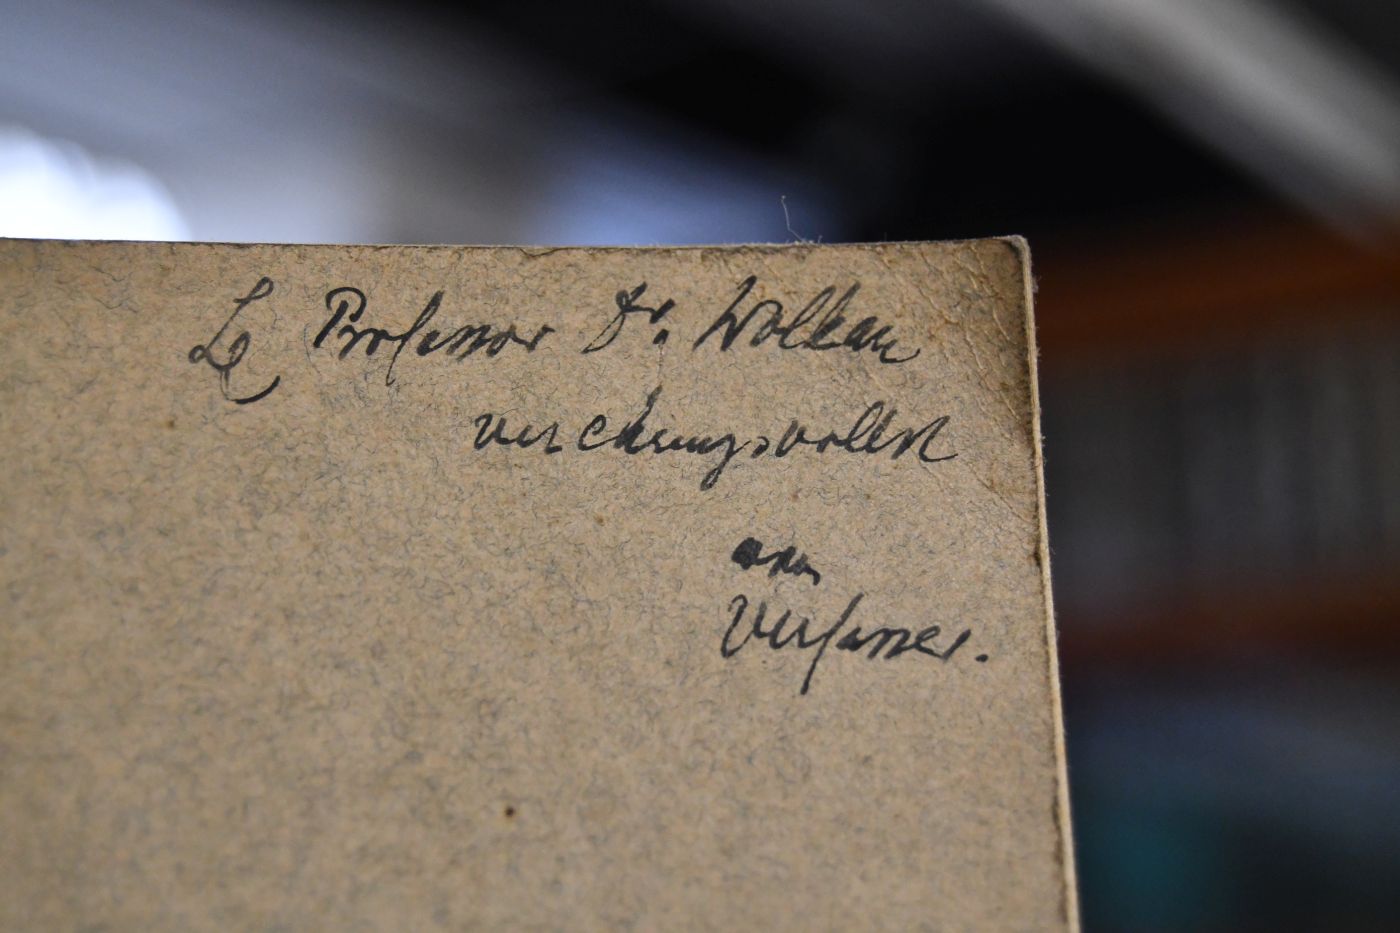 Professor Dr. Wolkan
verehrungsvollst
vom
Verfasser.